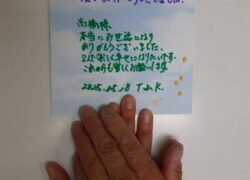 高橋様
本当にお世話になり
ありがとうございました。
2人で楽しく幸せになりたいです。
これからも宜しくお願いします。
2025.05.18 T.J.K.